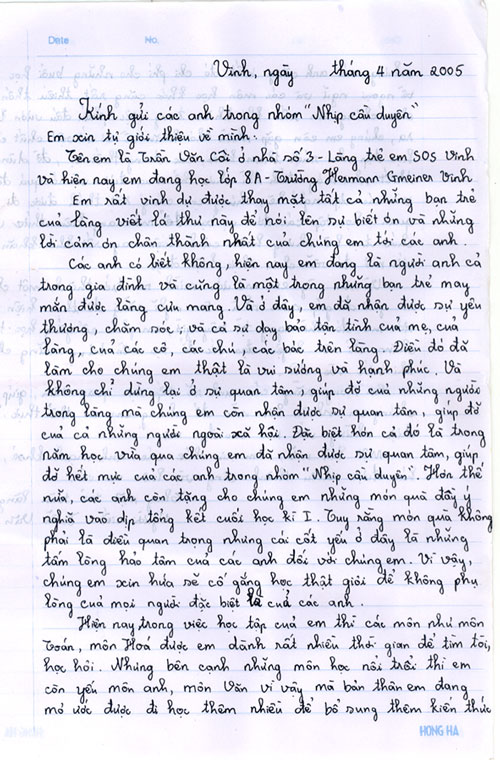 Date No.
Vinh, ngày tháng 4 năm 2005
Kính gửi các anh trong nhóm "Nhịp cầu duyên"
Em xin tự giới thiệu về mình:
Tên em là Trần Văn Côi ở nhà số 3 - Làng trẻ em SOS Vinh
và hiện nay em đang học lớp 8A - Trường Hermann Gmeiner Vinh
Em rất vinh dự được thay mặt tất cả những bạn trẻ
của làng viết lá thư này để nói lên sự biết ơn và những
lời cảm ơn chân thành nhất của chúng em tới các anh.
Các anh có biết không, hiện nay em đang là người anh cả
trong gia đình và cũng là một trong những bạn trẻ may
mắn được làng cưu mang. Và ở đây, em đã nhận được sự yêu
thương, chăm sóc, và cả sự dạy bảo tận tình của mẹ, của
làng, của các cô, các chú, các bác trên làng. Điều đó đã
làm cho chúng em thật là vui sướng và hạnh phúc. Và
không chỉ dừng lại ở sự quan tâm, giúp đỡ của những người
trong làng mà chúng em còn nhận được sự quan tâm, giúp đỡ
của cả những người ngoài xã hội. Đặc biệt hơn cả đó là trong
năm học vừa qua chúng em đã nhận được sự quan tâm, giúp
đỡ hết mực của các anh trong nhóm "Nhịp cầu duyên". Hơn thế
nữa, các anh còn tặng cho chúng em những món quà đầy ý
nghĩa vào dịp tổng kết cuối học kì I. Tuy rằng món quà không
phải là điều quan trọng nhưng cái cốt yếu ở đây là những
tấm lòng hảo tâm của các anh đối với chúng em. Vì vậy,
chúng em xin hứa sẽ cố gắng học thật giỏi để không phụ
lòng của mọi người đặc biệt là của các anh.
Hiện nay trong việc học tập của em thì các môn như môn
Toán, môn Hoá được em dành rất nhiều thời gian để tìm tòi,
học hỏi. Nhưng bên cạnh những môn học nổi trội thì em
còn yếu môn anh, môn Văn vì vậy mà bản thân em đang
mơ ước được đi học thêm nhiều để bổ sung thêm kiến thức
HONG HA